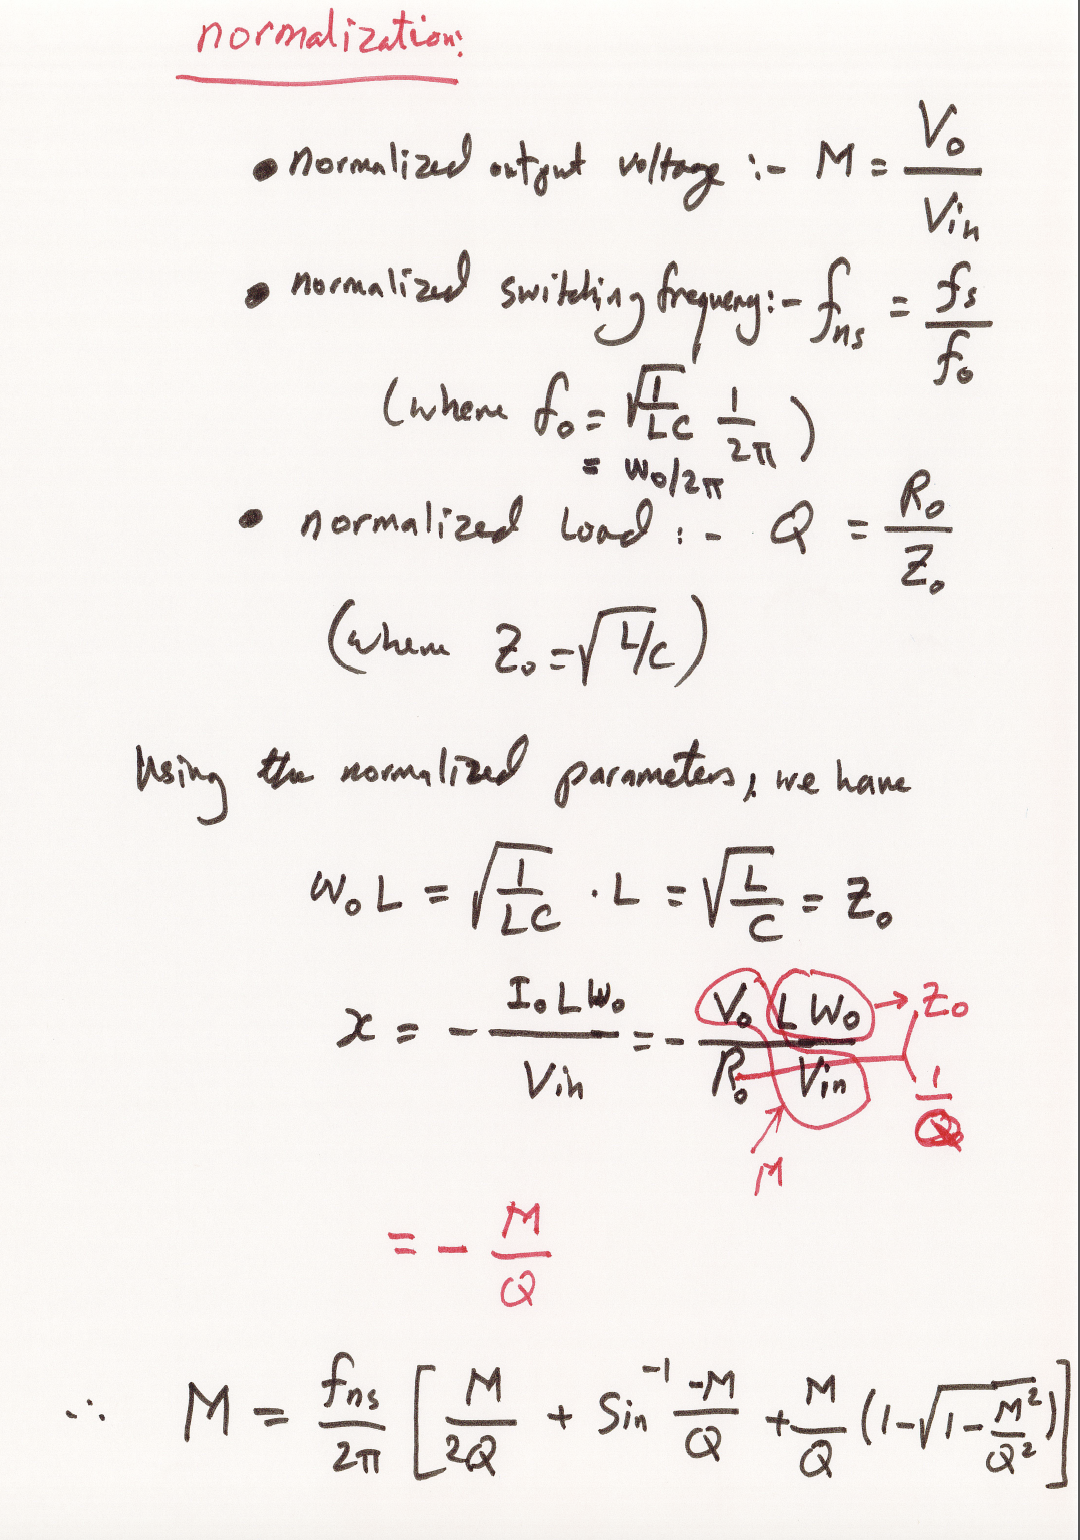 normalization:
• normalized output voltage :- M = Vo / Vin
• normalized switching frequency:- fns = fs / fo
(where fo = √(1/LC) 1/2π)
= wo/2π
• normalized Load :- Q = Ro / Zo
(where Zo = √(L/C))
Using the normalized parameters, we have
woL = √(1/LC) · L = √(L/C) = Zo
x = - IoLWo / Vin = - Vo LWo / Ro Vin → Zo
1/Q
M
= - M/Q
∴ M = fns/2π [ M/2Q + Sin⁻¹ -M/Q + M/Q (1-√(1-M²/Q²)) ]